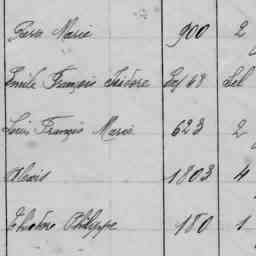 Pierre Marie 900 2
Emile François Isidore 68
Louis François Marie 623 2
Alexis 1803 4
Théodore Philippe 180 1